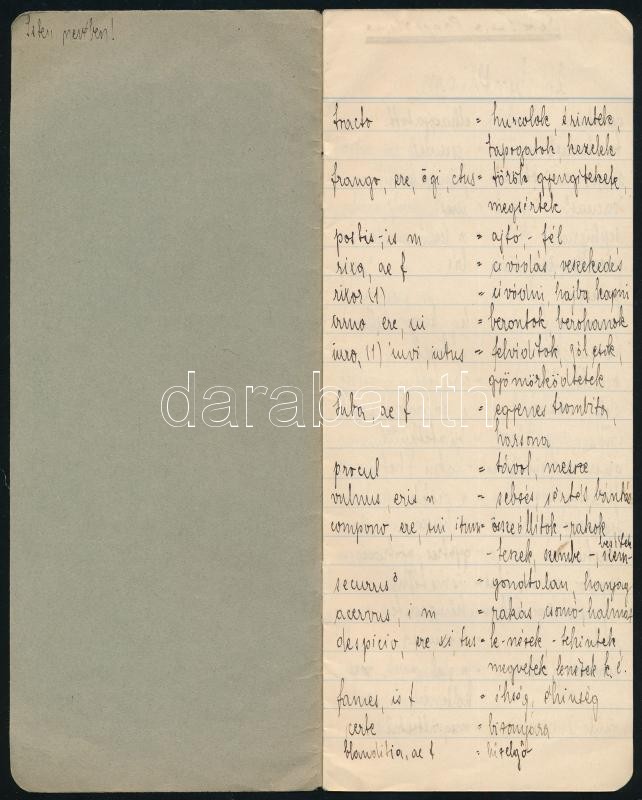 Isten nevében!
tracto = hurcolok, érintek,
tapogatok, kezelek
frango, ere, ēgi, ctus = török gyengitekek,
megsértek
postis, is m = ajtó-fél
rixa, ae f = civódás, veszekedés
rixor (1) = civódni, hajba kapni
irruo ere, ui = berontok berohanok
iuvo, (1) iuvi, iutus = felviditok,
gyömörködtetek
tuba, ae f = egyenes trombita,
harsona
procul = távol, messze
vulnus, eris n = sebzés, sértés
compono, ere, sui, itum = összeállitok, -rakok
-teszek, szembe-, 
securus 3 = gondtalan, hanyag
acervus, i m = rakás csomó-halmaz
despicio, ere xi, tus = le-nézek -tekintek,
megvetek, lenézek k. é.
fames, is f = éhség, éhinség
certe = bizonyára
blanditia, ae f = hizelgő
darabanth